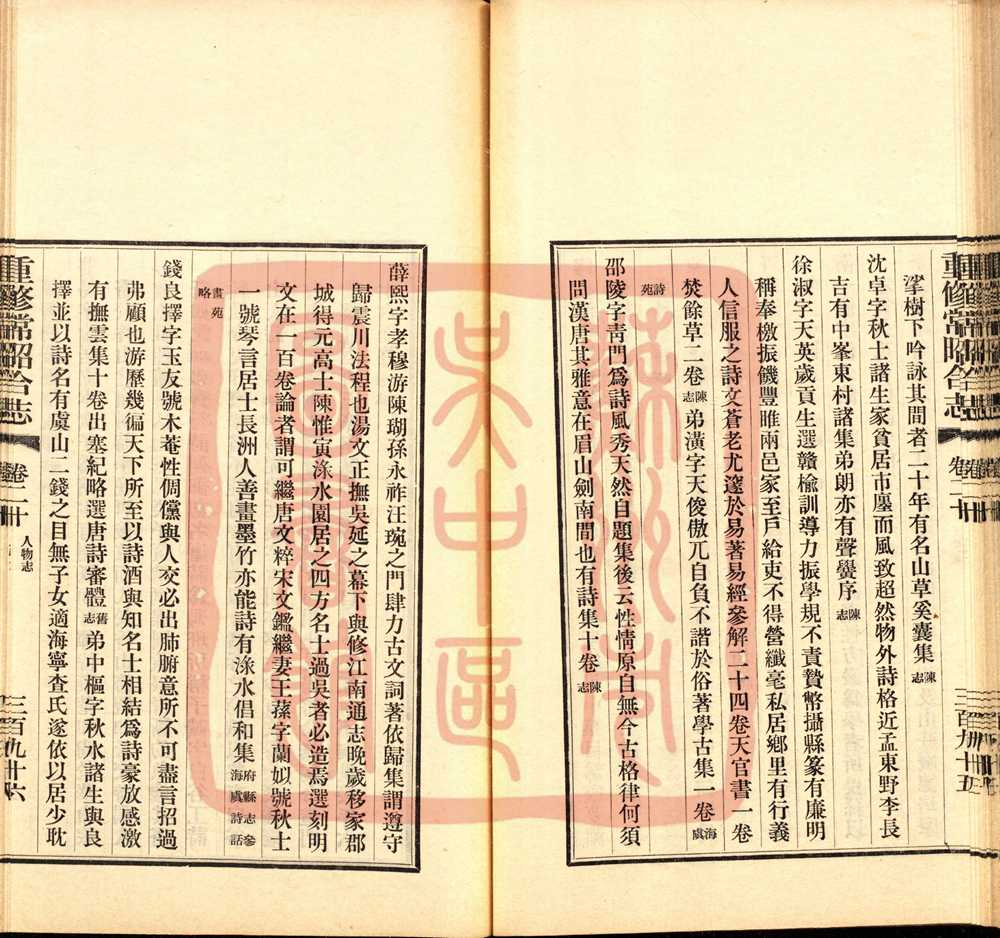 重修常昭合志
卷二十
三百九十五
滓樹下吟詠其間者二十年有名山草奚囊集陳志
沈卓字秋士諸生家貧居市廛而風致超然物外詩格近孟東野李長
吉有中峯東村諸集弟朗亦有聲黌序陳志
徐淑字天英歲貢生選贛榆訓導力振學規不責贄幣攝縣篆有廉明
稱奉檄振饑豐睢兩邑家至戶給吏不得營纖毫私居鄉里有行義
人信服之詩文蒼老尤邃於易著易經參解二十四卷天官書一卷
焚餘草二卷陳志弟潢字天俊傲兀自負不諧於俗著學古集一卷海虞
詩苑
邵陵字靑門爲詩風秀天然自題集後云性情原自無今古格律何須
問漢唐其雅意在眉山劍南間也有詩集十卷陳志
薛熙字孝穆游陳瑚孫永祚汪琬之門肆力古文詞著依歸集謂遵守
歸震川法程也湯文正撫吳延之幕下與修江南通志晚歲移家郡
城得元高士陳惟寅淥水園居之四方名士過吳者必造焉選刻明
文在一百卷論者謂可繼唐文粹宋文鑑繼妻王蓀字蘭姒號秋士
一號琴言居士長洲人善畫墨竹亦能詩有淥水倡和集府縣志參海虞詩話
畫苑略
錢良擇字玉友號木菴性倜儻與人交必出肺腑意所不可盡言招過
弗顧也游歷幾徧天下所至以詩酒與知名士相結爲詩豪放感激
有撫雲集十卷出塞紀略選唐詩審體舊志弟中樞字秋水諸生與良
擇並以詩名有虞山二錢之目無子女適海寧查氏遂依以居少耽
重修常昭合志
卷二十
人物志
三百九十六
蘇州市
吳中區
圖書館